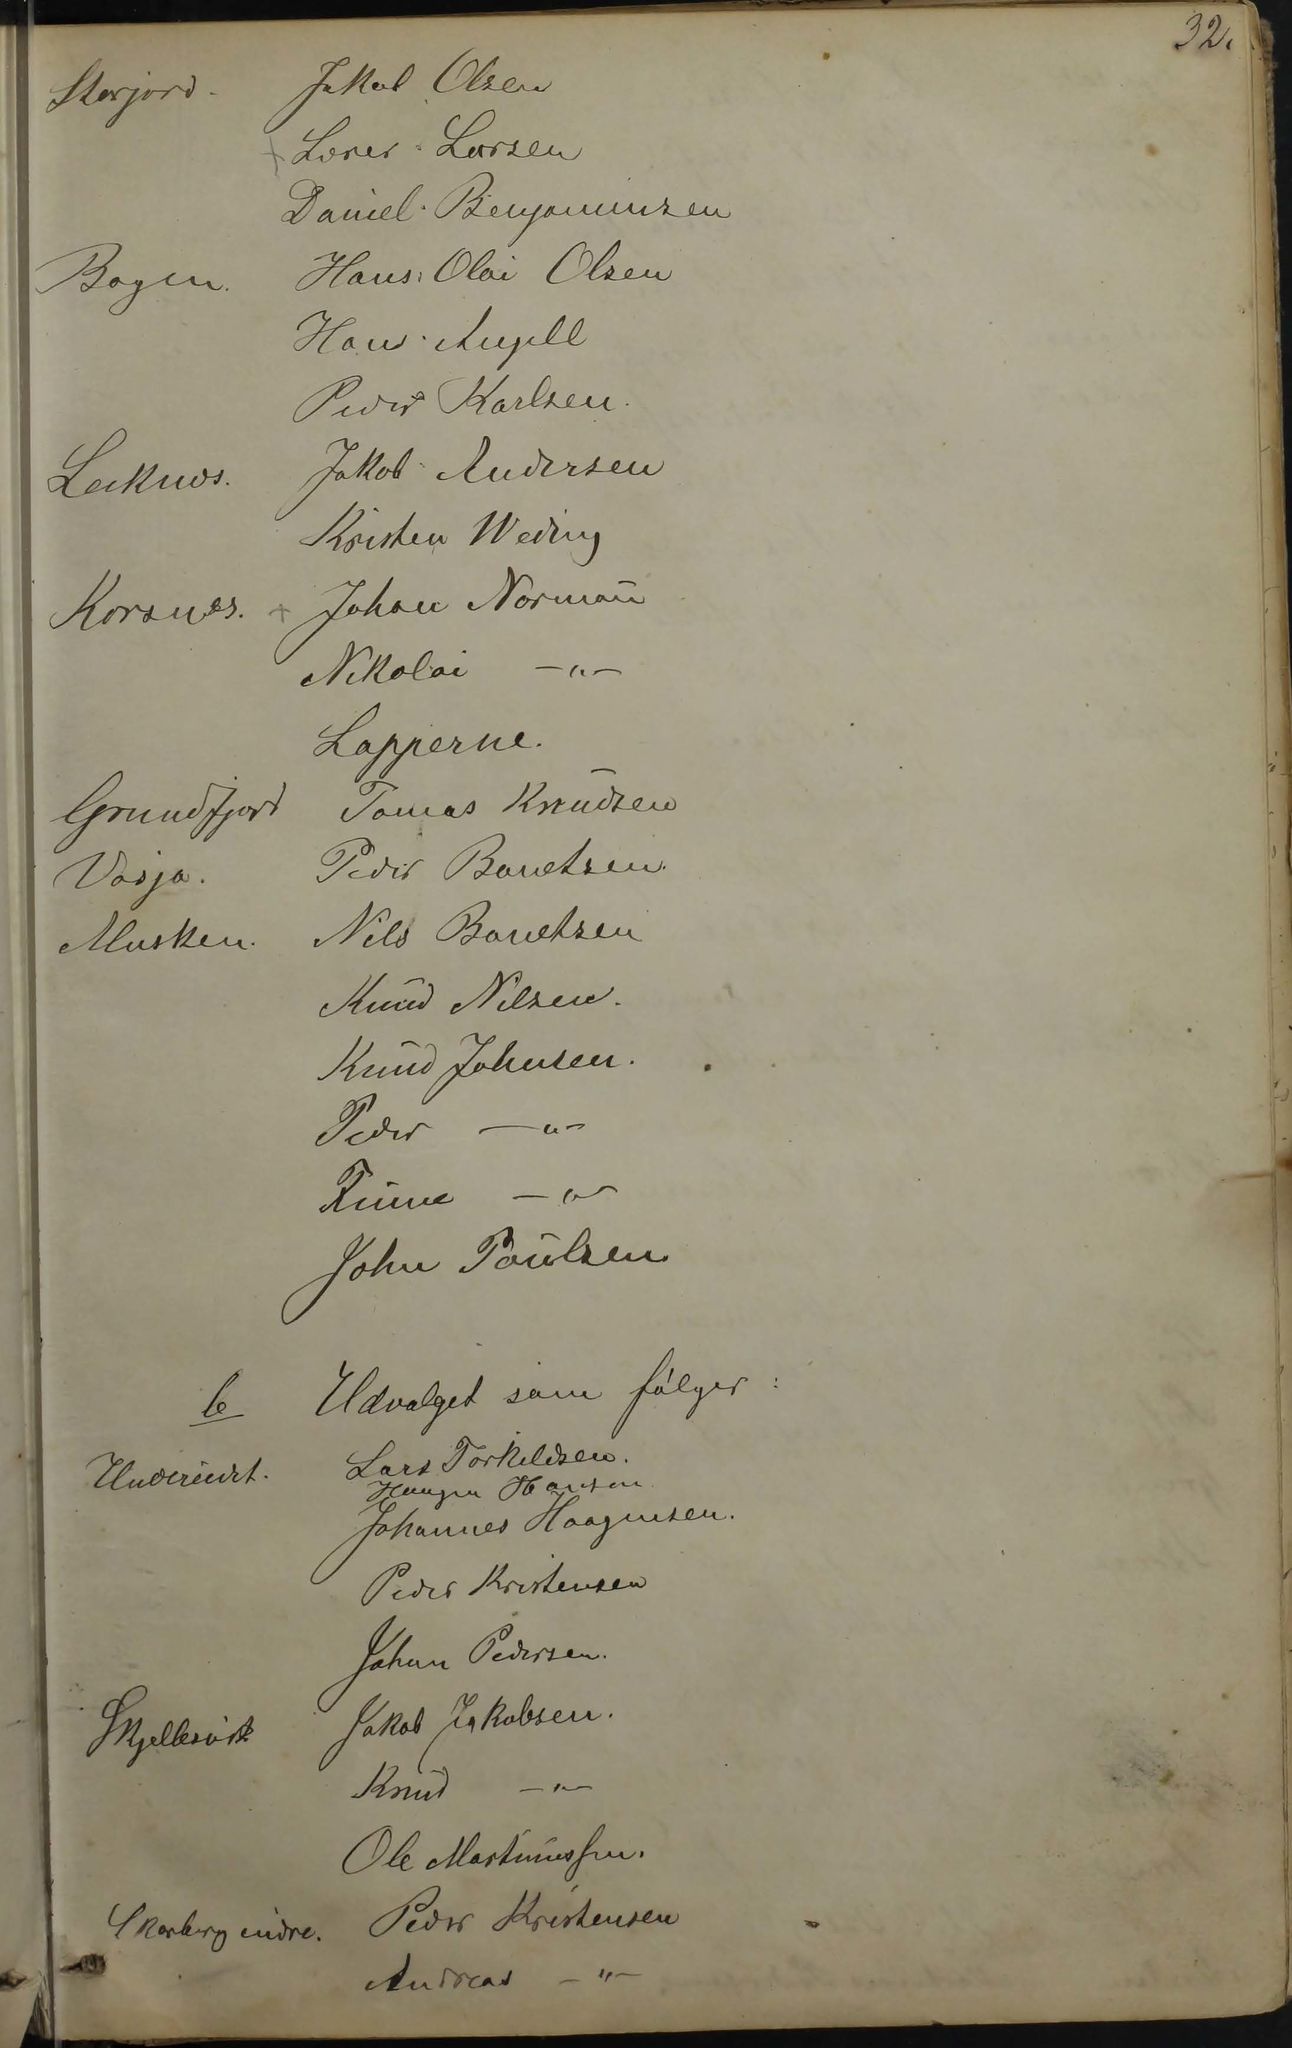 32.
Storjord. Jakob Olsen
+ Lærer Larsen
Daniel Benjaminsen
Bogen. Hans Olai Olsen
Hans Angell
Peder Karlsen.
Leiknæs. Jakob Andersen
Kristen Weding
Korsnæs. + Johan Normann
Nikolai —„—
Lapperne.
Grundfjord Tomas Knudsen
Vasja. Peder Baretsen.
Musken. Nils Baretsen
Knud Nilsen.
Knud Johnsen.
Peder —„—
Finne —„—
John Paulsen.
6 Udvalget som følger:
Lars Torkildsen.
Haagen Hansen
Johannes Haagensen.
Peder Kristensen
Johan Pedersen.
Skjellesvik Jakob Jakobsen.
Knud —„—
Ole Martinussen.
Skarberg indre. Peder Kristensen
Andreas —„—